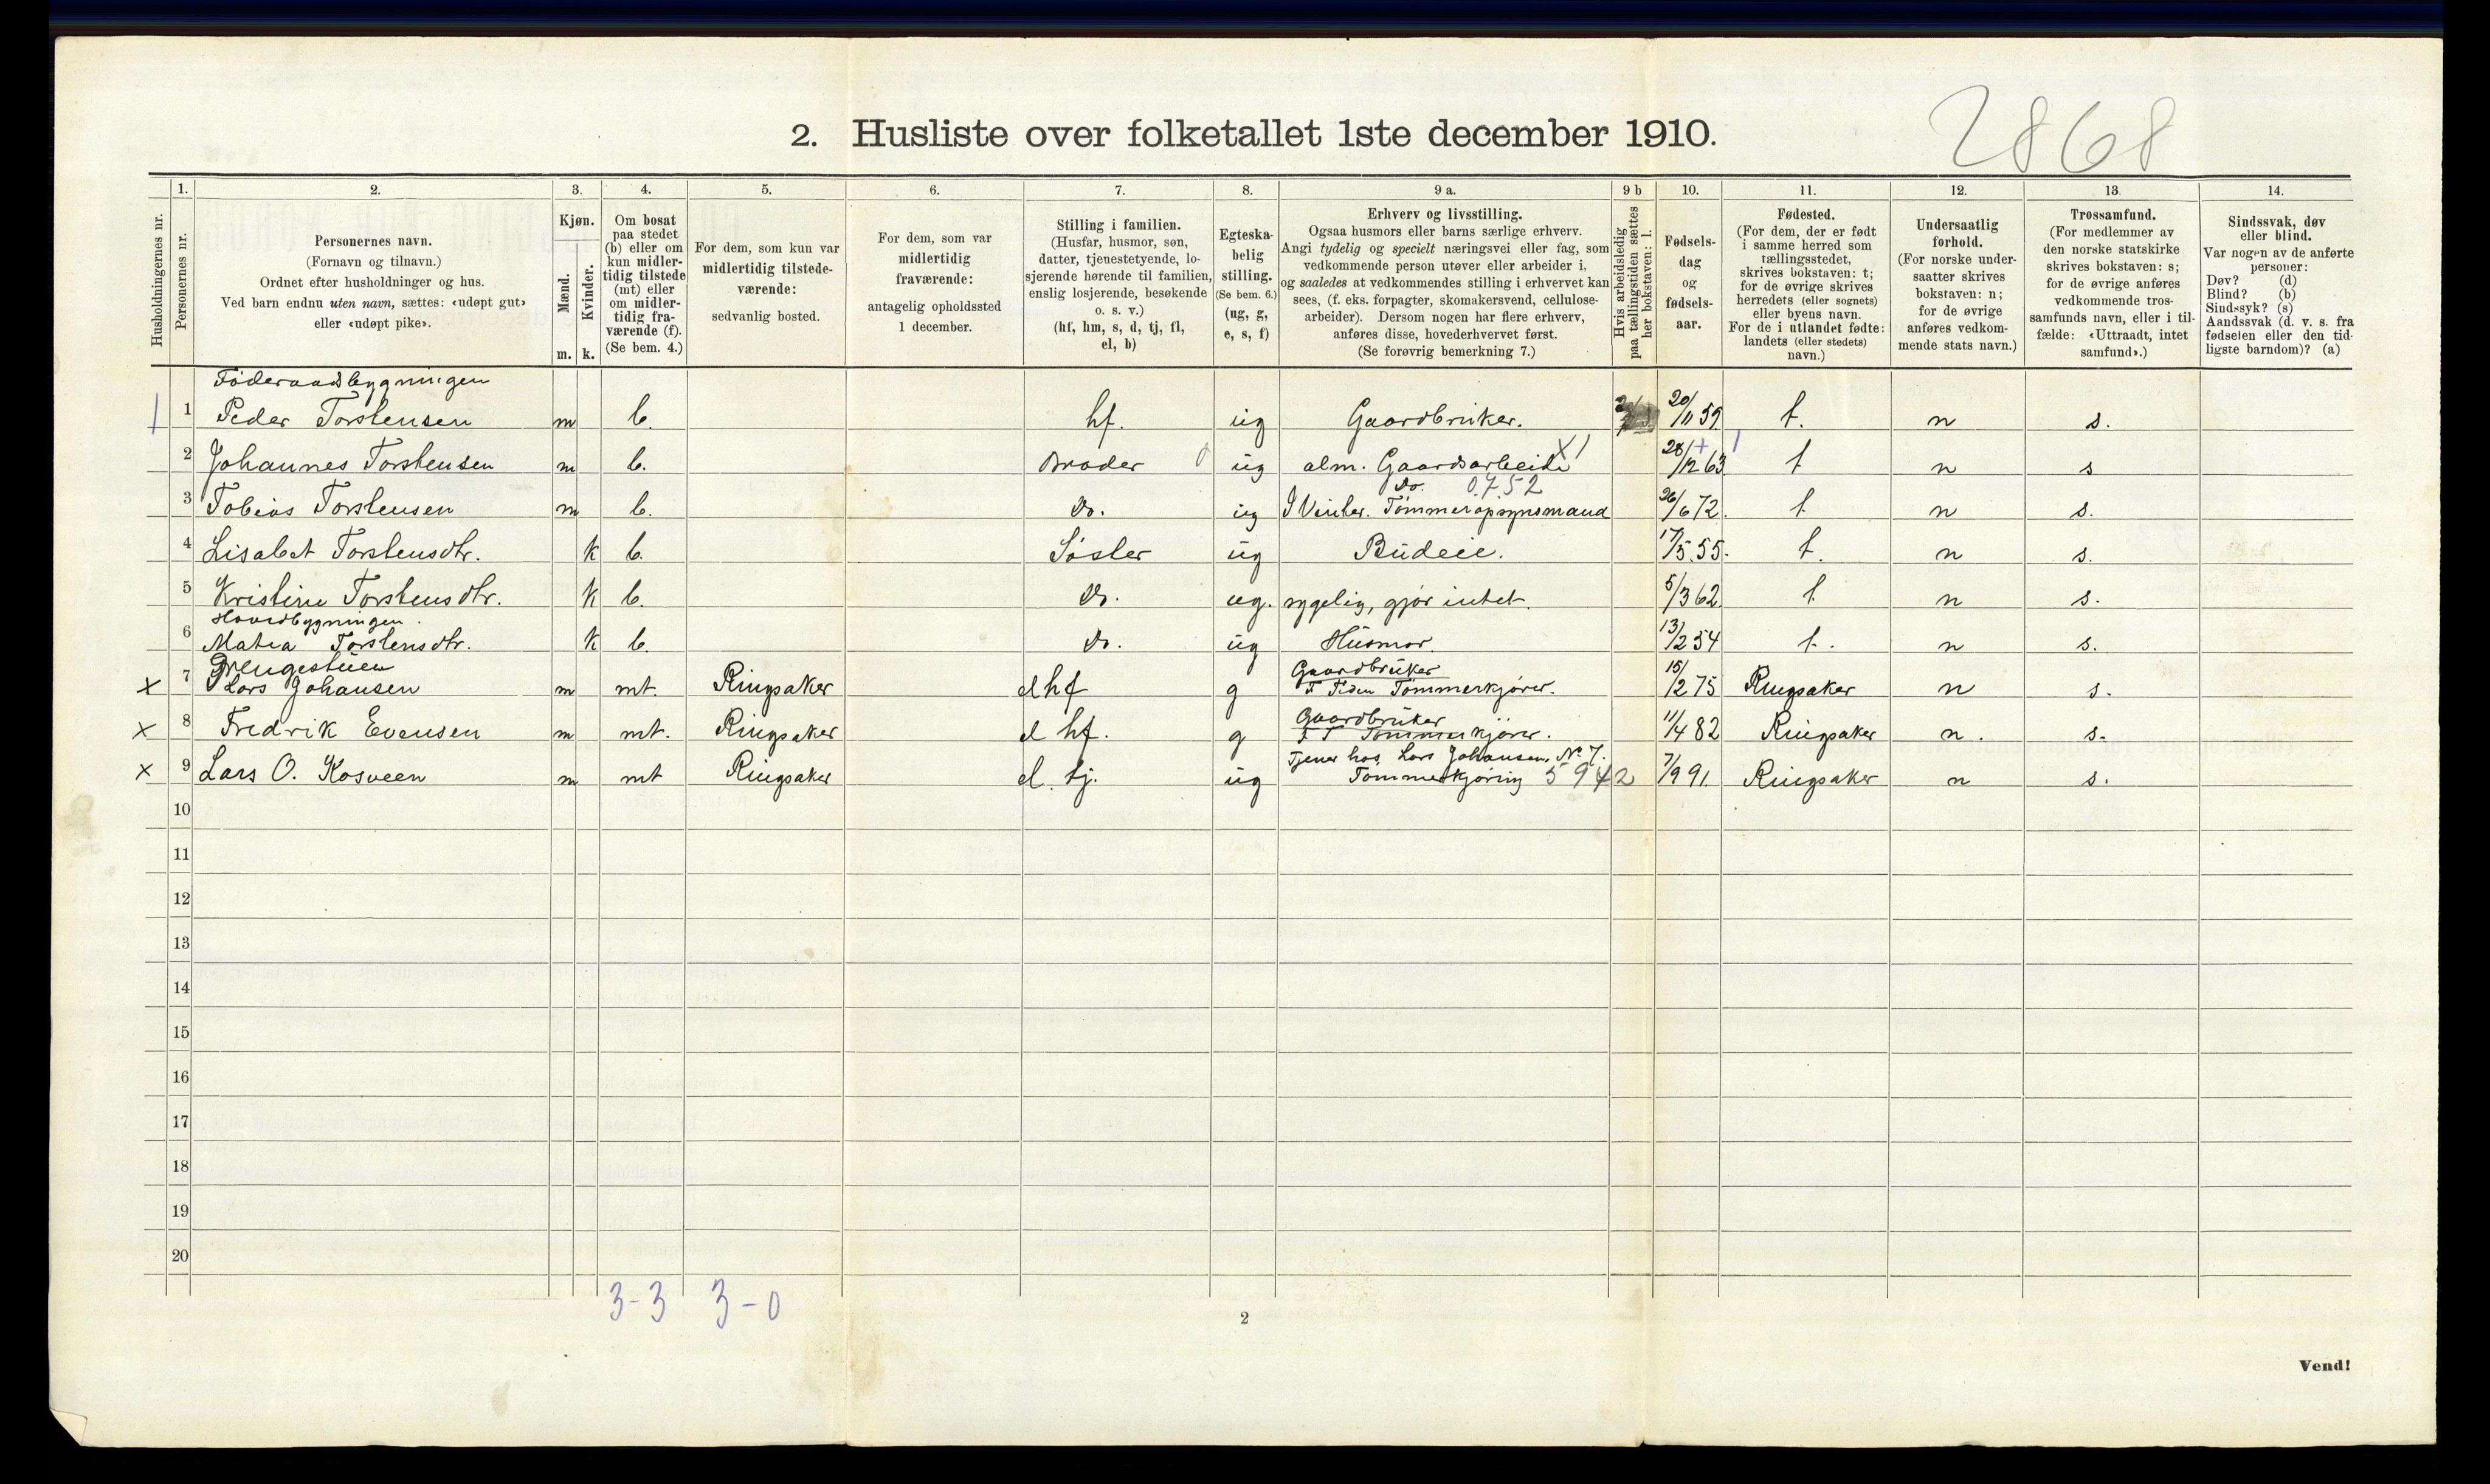 2868
2. Husliste over folketallet 1ste december 1910.
Husholdningernes nr.
1.
Personernes nr.
2.
Personernes navn.
(Fornavn og tilnavn.)
Ordnet efter husholdninger og hus.
Ved barn endnu uten navn, sættes: «udøpt gut»
eller «udøpt pike».
3.
Kjøn.
Mænd.
Kvinder.
m. k.
4.
Om bosat
paa stedet
(b) eller om
kun midler-
tidig tilstede
(mt) eller
om midler-
tidig fra-
værende (f).
(Se bem. 4.)
5.
For dem, som kun var
midlertidig tilstede-
værende:
sedvanlig bosted.
6.
For dem, som var
midlertidig
fraværende:
antagelig opholdssted
1 december.
7.
Stilling i familien.
(Husfar, husmor, søn,
datter, tjenestetyende, lo-
sjerende hørende til familien,
enslig losjerende, besøkende
o. s. v.)
(hf, hm, s, d, tj, fl,
el, b)
8.
Egteska-
belig
stilling.
(Se bem. 6.)
(ug, g,
e, s, f)
9 a.
Erhverv og livsstilling.
Ogsaa husmors eller barns særlige erhverv.
Angi tydelig og specielt næringsvei eller fag, som
vedkommende person utøver eller arbeider i,
og saaledes at vedkommendes stilling i erhvervet kan
sees, (f. eks. forpagter, skomakersvend, cellulose-
arbeider). Dersom nogen har flere erhverv,
anføres disse, hovederhvervet først.
(Se forøvrig bemerkning 7.)
9 b
Hvis arbeidsledig
paa tællingstiden sættes
her bokstaven: l.
10.
Fødsels-
dag
og
fødsels-
aar.
11.
Fødested.
(For dem, der er født
i samme herred som
tællingsstedet,
skrives bokstaven: t;
for de øvrige skrives
herredets (eller sognets)
eller byens navn.
For de i utlandet fødte:
landets (eller stedets)
navn.)
12.
Undersaatlig
forhold.
(For norske under-
saatter skrives
bokstaven: n;
for de øvrige
anføres vedkom-
mende stats navn.)
13.
Trossamfund.
(For medlemmer av
den norske statskirke
skrives bokstaven: s;
for de øvrige anføres
vedkommende tros-
samfunds navn, eller i til-
fælde: «Uttraadt, intet
samfund».)
14.
Sindssvak, døv
eller blind.
Var nogen av de anførte
personer:
Døv? (d)
Blind? (b)
Sindssyk? (s)
Aandssvak (d. v. s. fra
fødselen eller den tid-
ligste barndom)? (a)
Føderaadsbygningen
1 Peder Torstensen m b. hf. ug Gaardbruker. 20/11 59 t. n s.
2 Johannes Torstensen m b. Broder 0 ug alm. Gaardsarbeide X1 28/12 63 t n s
3 Tobias Torstensen m b. Do. ug Do. 0752
I Vinter. Tømmeropsynsmand 26/6 72. t n s.
4 Lisabet Torstensdtr. k b. Søster ug Budeie. 17/5 55. t. n s.
5 Kristine Torstensdtr. k b. Do. ug. sygelig, gjør intet. 5/3 62 t n s.
Hovedbygningen.
6 Matea Torstensdtr. k b. Do. ug Husmor. 13/2 54 t. n s.
Drengestuen
X 7 Lars Johansen m mt. Ringsaker el hf g Gaardbruker
F Tiden Tømmerkjører. 15/2 75 Ringsaker n s.
X 8 Fredrik Evensen m mt. Ringsaker el hf. g Gaardbruker
F T Tømmerkjører. 11/4 82 Ringsaker n. s.
X 9 Lars O. Kosveen m mt Ringsaker el. tj. ug Tjener hos Lars Johansen, No 7.
Tømmerkjøring 5942 7/9 91. Ringsaker n s.
10
11
12
13
14
15
16
17
18
19
20
3-3 3-0
2
Vend!